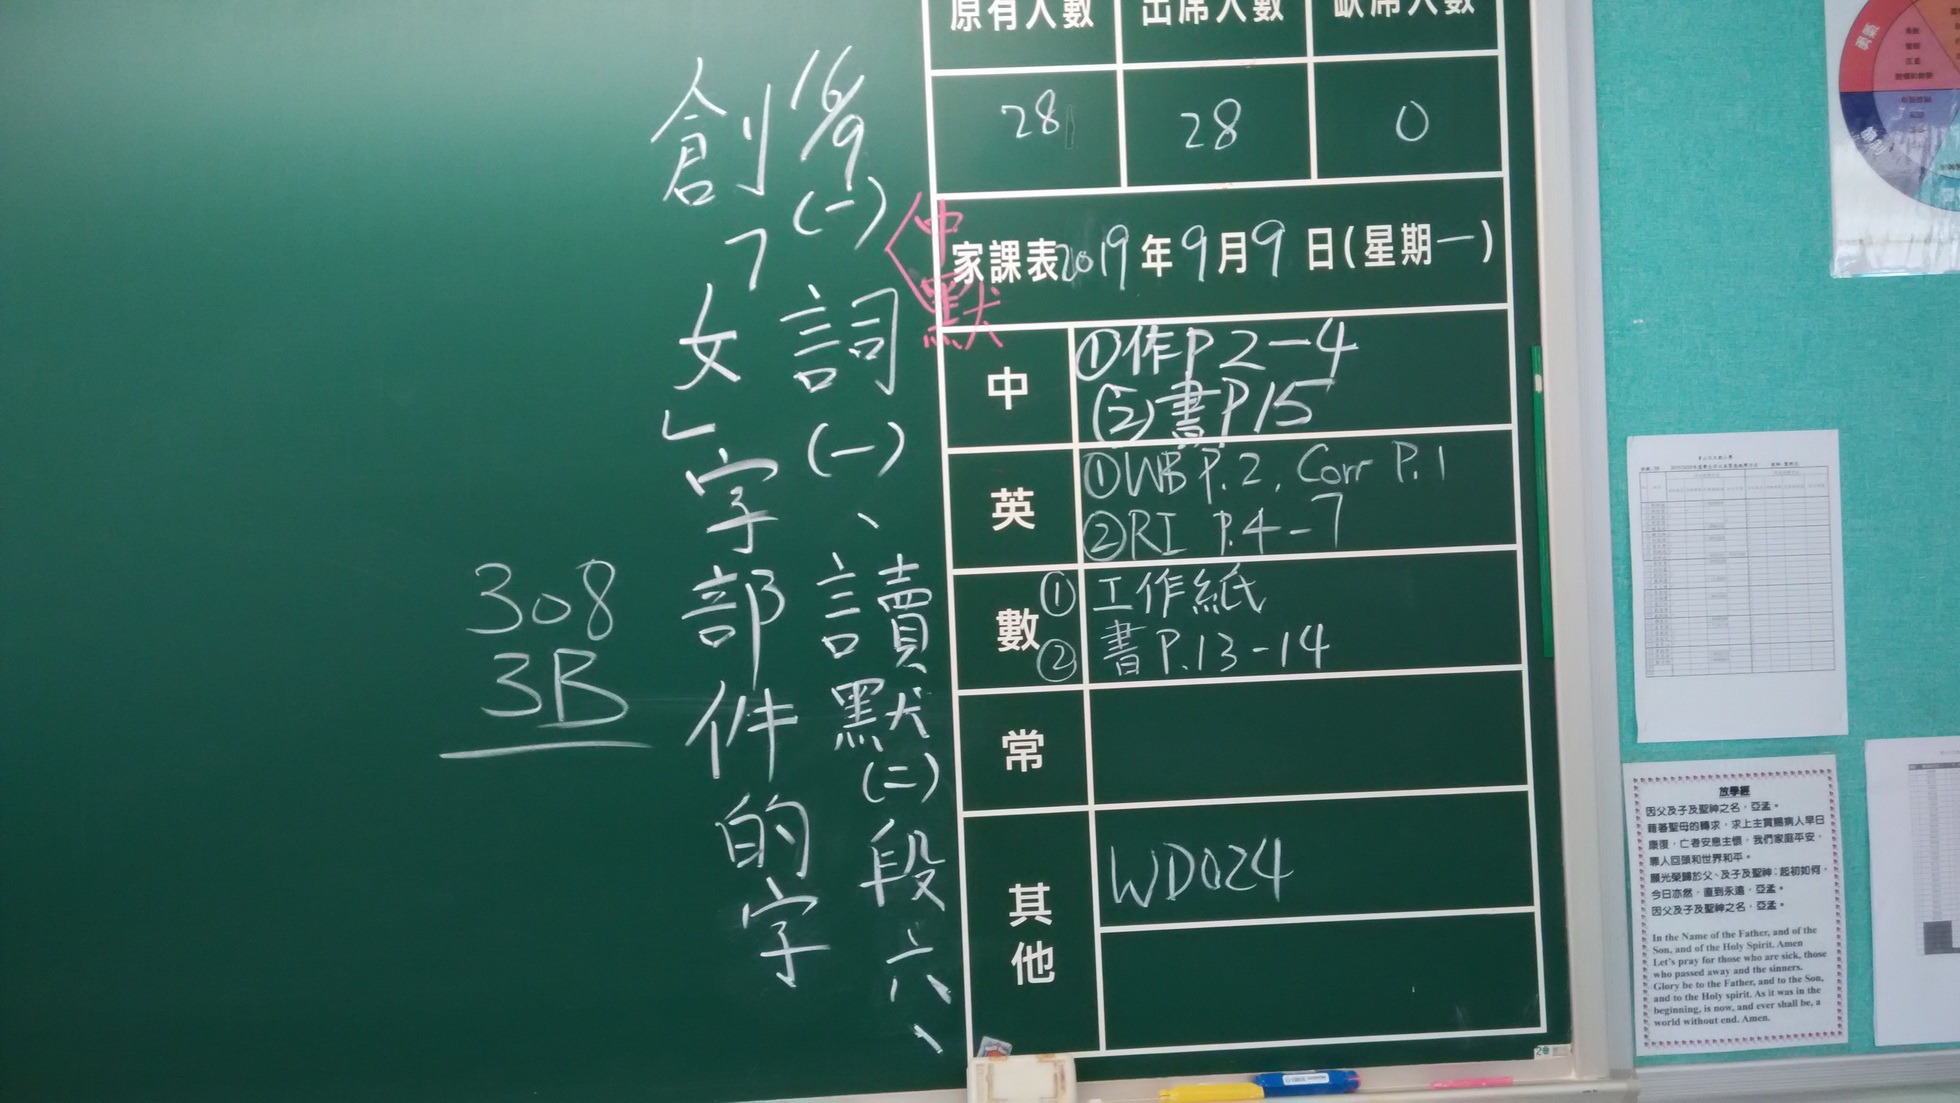 原有人數 出席人數 缺席人數
28 28 0
家課表 2019年9月9日(星期一)
中 ①作P2-4
②書P15
英 ①WB P.2, Corr P.1
②RI P.4-7
數 ①工作紙
②書P.13-14
常
其他 WD024
中默
16/9(一)詞(一)、讀默(二)段六、
創「女」字部件的字
308
3B
放學經
因父及子及聖神之名，亞孟。
藉著聖母的轉求，求上主賞賜病人早日
康復，亡者安息主懷，我們家庭平安，
罪人回頭和世界和平。
願光榮歸於父、及子及聖神；起初如何，
今日亦然，直到永遠，亞孟。
因父及子及聖神之名，亞孟。
In the Name of the Father, and of the
Son, and of the Holy Spirit. Amen
Let's pray for those who are sick, those
who passed away and the sinners.
Glory be to the Father, and to the Son,
and to the Holy spirit. As it was in the
beginning, is now, and ever shall be, a
world without end. Amen.